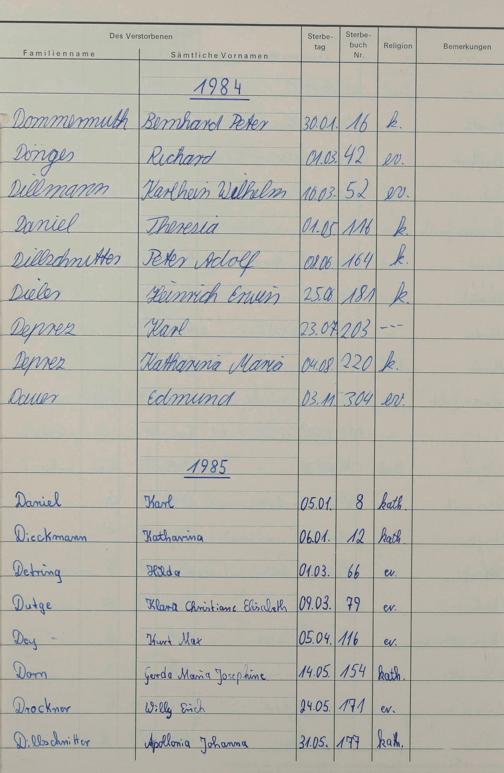 Des Verstorbenen Sterbe-tag Sterbe-buch Nr. Religion Bemerkungen
Familienname Sämtliche Vornamen
1984
Dommermuth Bernhard Peter 30.01. 16 k.
Dönges Richard 01.03. 42 ev.
Dillmann Karlhein Wilhelm 10.03. 52 ev.
Daniel Theresia 01.05 116 k.
Dillschnitter Peter Adolf 08.06. 164 k.
Dieler Heinrich Erwin 25.06. 181 k.
Deprez Karl 23.07. 203 ---
Deprez Katharina Maria 04.08 220 k.
Dauer Edmund 03.11. 304 ev.
1985
Daniel Karl 05.01. 8 kath.
Dieckmann Katharina 06.01. 12 kath.
Detring Hilda 01.03. 66 ev.
Dutge Klara Christiane Elisabeth 09.03. 79 ev.
Dey - Kurt Max 05.04. 116 ev.
Dorn Gerda Maria Josephine 14.05. 154 kath.
Drockner Willy Erich 24.05. 171 ev.
Dillschnitter Apollonia Johanna 31.05. 177 kath.